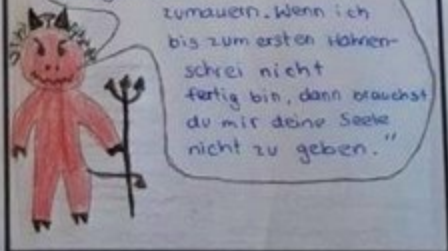 zumauern. Wenn ich
bis zum ersten Hahnen-
schrei nicht
fertig bin, dann brauchst
du mir deine Seele
nicht zu geben."